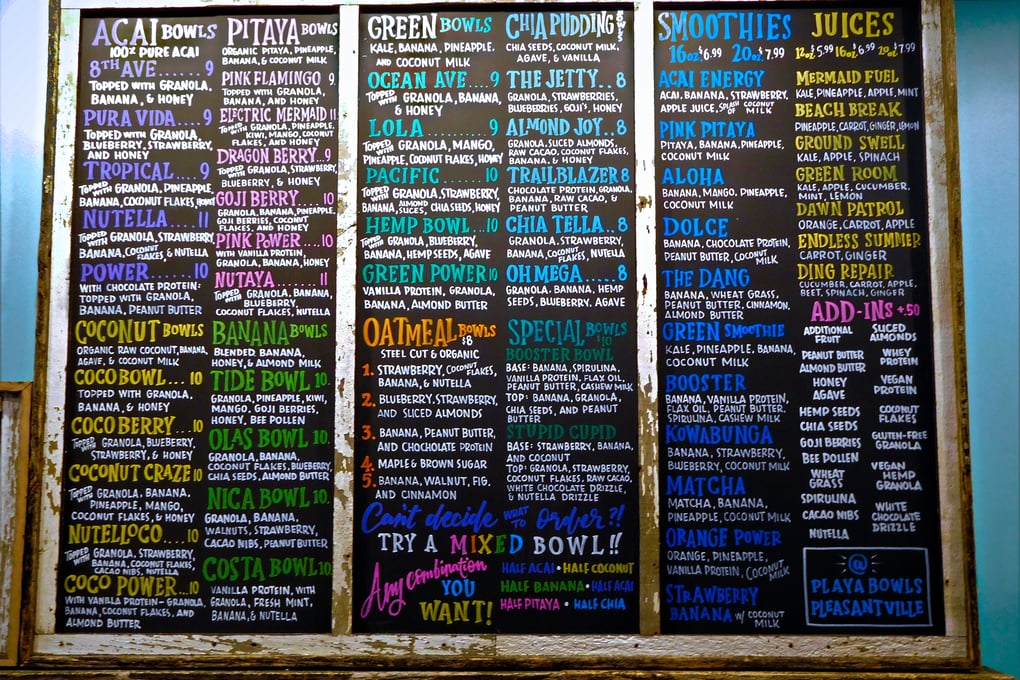 ACAI BOWLS
100% PURE ACAI
8TH AVE......9
TOPPED WITH GRANOLA,
BANANA, & HONEY
PURA VIDA....9
TOPPED WITH GRANOLA,
BLUEBERRY, STRAWBERRY,
AND HONEY
TROPICAL...9
TOPPED WITH GRANOLA, PINEAPPLE,
BANANA, COCONUT FLAKES, HONEY
NUTELLA....11
TOPPED WITH GRANOLA, STRAWBERRY,
BANANA, COCONUT FLAKES, & NUTELLA
POWER......10
WITH CHOCOLATE PROTEIN:
TOPPED WITH GRANOLA,
BANANA, PEANUT BUTTER
COCONUT BOWLS
ORGANIC RAW COCONUT, BANANA,
AGAVE, & COCONUT MILK
COCO BOWL...10
TOPPED WITH GRANOLA,
BANANA, & HONEY
COCO BERRY...10
TOPPED WITH GRANOLA, BLUEBERRY,
STRAWBERRY, & HONEY
COCONUT CRAZE 10
TOPPED WITH GRANOLA, BANANA,
PINEAPPLE, MANGO,
COCONUT FLAKES, & HONEY
NUTELLOCO....10
TOPPED WITH GRANOLA, STRAWBERRY,
BANANA, COCONUT FLAKES,
CACAO NIBS, & NUTELLA
COCO POWER...10
WITH VANILLA PROTEIN - GRANOLA,
BANANA, COCONUT FLAKES, AND
ALMOND BUTTER
PITAYA BOWLS
ORGANIC PITAYA, PINEAPPLE,
AND COCONUT MILK
PINK FLAMINGO 9
TOPPED WITH GRANOLA,
BANANA, AND HONEY
ELECTRIC MERMAID 11
TOPPED WITH GRANOLA, PINEAPPLE,
KIWI, MANGO, COCONUT
FLAKES, AND HONEY
DRAGON BERRY...9
TOPPED WITH GRANOLA, STRAWBERRY,
BLUEBERRY, & HONEY
GOJI BERRY....10
GRANOLA, BANANA, PINEAPPLE,
GOJI BERRIES, COCONUT
FLAKES, AND HONEY
PINK POWER....10
WITH VANILLA PROTEIN,
GRANOLA, BANANA, HONEY
NUTAYA.......11
TOPPED WITH GRANOLA, BANANA,
BLUEBERRY,
COCONUT FLAKES, NUTELLA
BANANA BOWLS
BLENDED BANANA,
HONEY, & ALMOND MILK
TIDE BOWL 10.
GRANOLA, PINEAPPLE, KIWI,
MANGO, GOJI BERRIES,
HONEY, BEE POLLEN
OLAS BOWL 10.
GRANOLA, BANANA,
COCONUT FLAKES, BLUEBERRY,
CHIA SEEDS, ALMOND BUTTER
NICA BOWL 10.
GRANOLA, BANANA,
WALNUTS, STRAWBERRY,
CACAO NIBS, PEANUT BUTTER
COSTA BOWL 10
VANILLA PROTEIN, WITH
GRANOLA, FRESH MINT,
BANANA, & NUTELLA
GREEN BOWLS
KALE, BANANA, PINEAPPLE,
AND COCONUT MILK
OCEAN AVE....9
TOPPED WITH GRANOLA, BANANA,
& HONEY
LOLA..........9
TOPPED WITH GRANOLA, MANGO,
PINEAPPLE, COCONUT FLAKES, HONEY
PACIFIC.....10
TOPPED WITH GRANOLA, STRAWBERRY,
BANANA ALMOND SLICES, CHIA SEEDS, HONEY
HEMP BOWL...10
TOPPED WITH GRANOLA, BLUEBERRY,
BANANA, HEMP SEEDS, AGAVE
GREEN POWER 10
VANILLA PROTEIN, GRANOLA,
BANANA, ALMOND BUTTER
CHIA PUDDING BOWLS
CHIA SEEDS, COCONUT MILK,
AGAVE, & VANILLA
THE JETTY..8
GRANOLA, STRAWBERRIES,
BLUEBERRIES, GOJI'S, HONEY
ALMOND JOY..8
GRANOLA, SLICED ALMONDS,
RAW CACAO, COCONUT FLAKES,
BANANA, & HONEY
TRAILBLAZER 8
CHOCOLATE PROTEIN, GRANOLA,
BANANA, RAW CACAO, &
PEANUT BUTTER
CHIA TELLA..8
GRANOLA, STRAWBERRY,
BANANA, COCONUT FLAKES, NUTELLA
OH MEGA.....8
GRANOLA, BANANA, HEMP
SEEDS, BLUEBERRY, AGAVE
OATMEAL BOWLS $8
STEEL CUT & ORGANIC
1. STRAWBERRY, COCONUT FLAKES,
BANANA, & NUTELLA
2. BLUEBERRY, STRAWBERRY,
AND SLICED ALMONDS
3. BANANA, PEANUT BUTTER,
AND CHOCHOLATE PROTEIN
4. MAPLE & BROWN SUGAR
5. BANANA, WALNUT, FIG,
AND CINNAMON
SPECIAL BOWLS $10
BOOSTER BOWL
BASE: BANANA, SPIRULINA,
VANILLA PROTEIN, FLAX OIL,
PEANUT BUTTER, CASHEW MILK
TOP: BANANA, GRANOLA,
CHIA SEEDS, AND PEANUT
BUTTER
STUPID CUPID
BASE: STRAWBERRY, BANANA,
AND COCONUT
TOP: GRANOLA, STRAWBERRY,
COCONUT FLAKES, RAW CACAO,
WHITE CHOCOLATE DRIZZLE,
& NUTELLA DRIZZLE
Can't decide WHAT TO Order?!
TRY A MIXED BOWL!!
Any combination
YOU
WANT!
HALF ACAI • HALF COCONUT
HALF BANANA • HALF ACAI
HALF PITAYA • HALF CHIA
SMOOTHIES
16oz $6.99 20oz $7.99
ACAI ENERGY
ACAI, BANANA, STRAWBERRY,
APPLE JUICE, SPLASH OF COCONUT MILK
PINK PITAYA
PITAYA, BANANA, PINEAPPLE,
COCONUT MILK
ALOHA
BANANA, MANGO, PINEAPPLE,
COCONUT MILK
DOLCE
BANANA, CHOCOLATE PROTEIN,
PEANUT BUTTER, COCONUT MILK
THE DANG
BANANA, WHEAT GRASS,
PEANUT BUTTER, CINNAMON,
ALMOND BUTTER
GREEN SMOOTHIE
KALE, PINEAPPLE, BANANA,
COCONUT MILK
BOOSTER
BANANA, VANILLA PROTEIN,
FLAX OIL, PEANUT BUTTER,
SPIRULINA, CASHEW MILK
KOWABUNGA
BANANA, STRAWBERRY,
BLUEBERRY, COCONUT MILK
MATCHA
MATCHA, BANANA,
PINEAPPLE, COCONUT MILK
ORANGE POWER
ORANGE, PINEAPPLE,
VANILLA PROTEIN, COCONUT MILK
STRAWBERRY
BANANA W/ COCONUT MILK
JUICES
12oz $5.99 16oz $6.99 20oz $7.99
MERMAID FUEL
KALE, PINEAPPLE, APPLE, MINT
BEACH BREAK
PINEAPPLE, CARROT, GINGER, LEMON
GROUND SWELL
KALE, APPLE, SPINACH
GREEN ROOM
KALE, APPLE, CUCUMBER,
MINT, LEMON
DAWN PATROL
ORANGE, CARROT, APPLE
ENDLESS SUMMER
CARROT, GINGER
DING REPAIR
CUCUMBER, CARROT, APPLE,
BEET, SPINACH, GINGER
ADD-INS +.50
ADDITIONAL
FRUIT
PEANUT BUTTER
ALMOND BUTTER
HONEY
AGAVE
HEMP SEEDS
CHIA SEEDS
GOJI BERRIES
BEE POLLEN
WHEAT
GRASS
SPIRULINA
CACAO NIBS
NUTELLA
SLICED
ALMONDS
WHEY
PROTEIN
VEGAN
PROTEIN
COCONUT
FLAKES
GLUTEN-FREE
GRANOLA
VEGAN
HEMP
GRANOLA
WHITE
CHOCOLATE
DRIZZLE
@
PLAYA BOWLS
PLEASANTVILLE